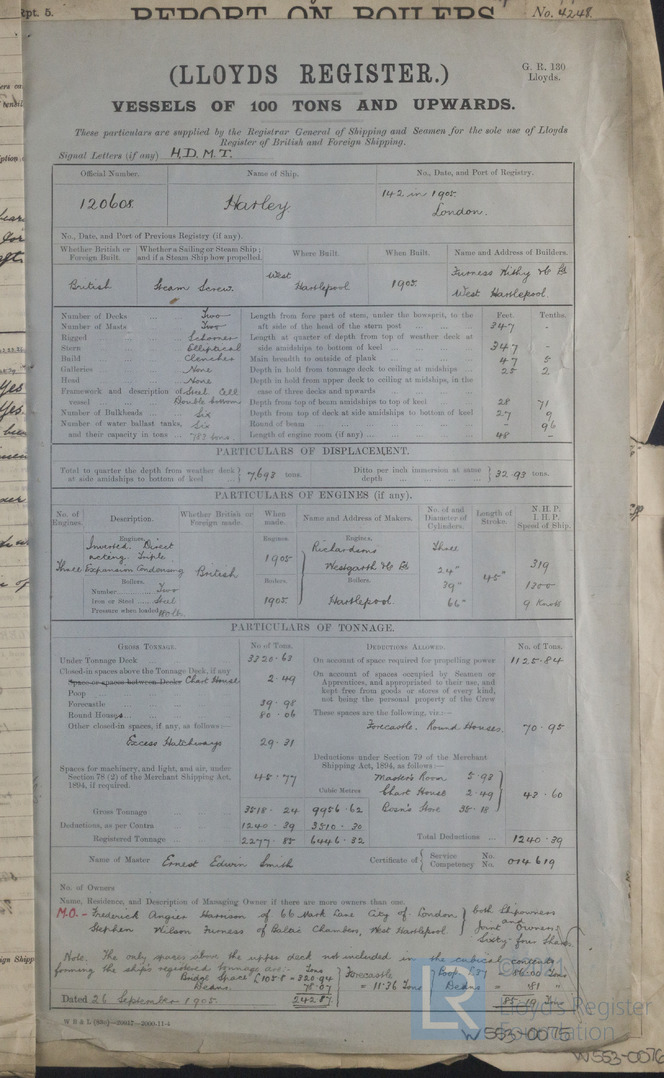 Rpt. 5.
REPORT ON BOILERS
No. 4248.
(LLOYDS REGISTER.)
G. R. 130
Lloyds.
VESSELS OF 100 TONS AND UPWARDS.
These particulars are supplied by the Registrar General of Shipping and Seamen for the sole use of Lloyds
Register of British and Foreign Shipping.
Signal Letters (if any) H.D.M.T.
Official Number. Name of Ship. No., Date, and Port of Registry.
120608 Harley 142 in 1905
London.
No., Date, and Port of Previous Registry (if any).
Whether British or Foreign Built. Whether a Sailing or Steam Ship; and if a Steam Ship how propelled. Where Built. When Built. Name and Address of Builders.
British Steam Screw. West Hartlepool 1905 Furness Withy &c Ld
West Hartlepool
Number of Decks ... Two Length from fore part of stem, under the bowsprit, to the Feet. Tenths.
Number of Masts ... Two aft side of the head of the stern post ... 347 -
Rigged ... Schooner Length at quarter of depth from top of weather deck at
Stern ... Elliptical side amidships to bottom of keel ... 347 -
Build ... Clencher Main breadth to outside of plank ... 47 5
Galleries ... None Depth in hold from tonnage deck to ceiling at midships ... 25 2
Head ... None Depth in hold from upper deck to ceiling at midships, in the
Framework and description of Steel Cell case of three decks and upwards
vessel ... Double bottom Depth from top of beam amidships to top of keel ... 28 71
Number of Bulkheads ... Six Depth from top of deck at side amidships to bottom of keel 27 9
Number of water ballast tanks, Six Round of beam ... - 96
and their capacity in tons ... 783 tons. Length of engine room (if any) ... 48 -
PARTICULARS OF DISPLACEMENT.
Total to quarter the depth from weather deck at side amidships to bottom of keel ... 7,693 tons. Ditto per inch immersion at same depth ... 32.93 tons.
PARTICULARS OF ENGINES (if any).
No. of Engines. Description. Whether British or Foreign made. When made. Name and Address of Makers. No. of and Diameter of Cylinders. Length of Stroke. N.H.P. I.H.P. Speed of Ship.
Engines. Engines. Engines.
Inverted. Direct Richardsons Three
acting. Triple 1905 Westgarth &c Ld 24" 319
Three Expansion Condensing British 39" 45" 1300
Boilers. Boilers. Boilers.
Number ... Two
Iron or Steel ... Steel 1905 Hartlepool 66" 9 Knots
Pressure when loaded
PARTICULARS OF TONNAGE.
GROSS TONNAGE. No of Tons. DEDUCTIONS ALLOWED. No. of Tons.
Under Tonnage Deck 3320.63 On account of space required for propelling power 1125.84
Closed-in spaces above the Tonnage Deck, if any On account of spaces occupied by Seamen or
Space or spaces between Decks Chart House 2.49 Apprentices, and appropriated to their use, and
Poop ... kept free from goods or stores of every kind,
Forecastle ... 39.98 not being the personal property of the Crew
Round Houses ... 80.06 These spaces are the following, viz.:—
Other closed-in spaces, if any, as follows:— Forecastle. Round Houses. 70.95
Excess Hatchways 29.31
Deductions under Section 79 of the Merchant
Shipping Act, 1894, as follows:—
Spaces for machinery, and light, and air, under Master's Room 5.93
Section 78 (2) of the Merchant Shipping Act, 1894, if required. 45.77 Cubic Metres Chart House 2.49 43.60
Gross Tonnage 3518.24 9956.62 Bosn's Store 35.18
Deductions, as per Contra 1240.39 3510.30
Registered Tonnage ... 2277.85 6446.32 Total Deductions ... 1240.39
Name of Master Ernest Edwin Smith Certificate of Service No. Competency No. 014619
No. of Owners
Name, Residence, and Description of Managing Owner if there are more owners than one.
M.O. - Frederick Angier Harrison of 66 Mark Lane City of London both Shipowners
Stephen Wilson Furness of Baltic Chambers, West Hartlepool and Joint Owners
Sixty four Shares
Note. The only spaces above the upper deck not included in the cubical contents
forming the ship's registered tonnage are:- Tons
Bridge Space
Beams Forecastle = 11.36 Tons Poop Beams = .81 "
242.87 85.19 Tons
Dated 26 September 1905.
LR
Lloyd's Register
Foundation
W553-0076
W553-0076